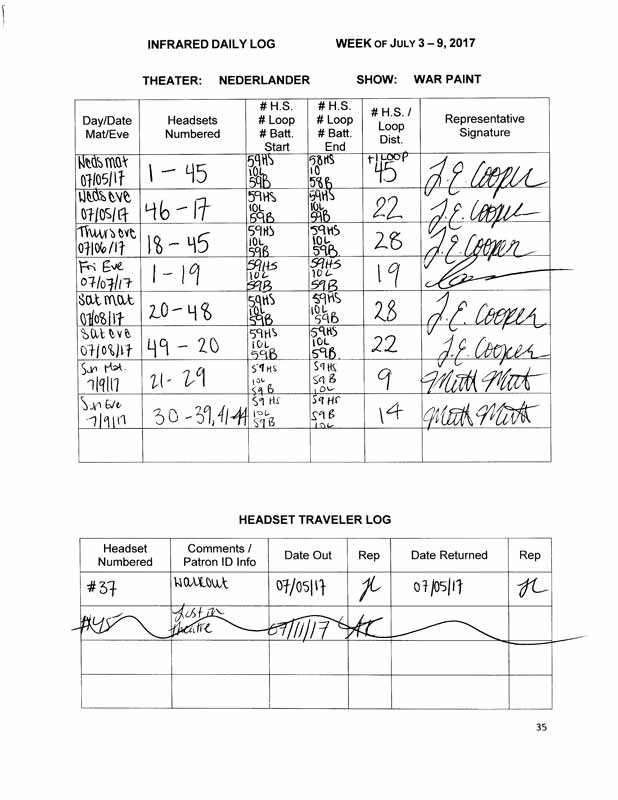 INFRARED DAILY LOG WEEK OF JULY 3 – 9, 2017
THEATER: NEDERLANDER SHOW: WAR PAINT
Day/Date Mat/Eve | Headsets Numbered | # H.S. # Loop # Batt. Start | # H.S. # Loop # Batt. End | # H.S. / Loop Dist. | Representative Signature
Weds mat 07/05/17 | 1 – 45 | 59HS 10L 59B | 58HS 10 58B | +1 LOOP 45 | J.E. Cooper
Weds eve 07/05/17 | 46 – 17 | 59HS 10L 59B | 59HS 10L 59B | 22 | J.E. Cooper
Thurs eve 07/06/17 | 18 – 45 | 59HS 10L 59B | 59HS 10L 59B | 28 | J.E. Cooper
Fri Eve 07/07/17 | 1 – 19 | 59HS 10L 59B | 59HS 10L 59B | 19
Sat mat 07/08/17 | 20 – 48 | 59HS 10L 59B | 59HS 10L 59B | 28 | J.E. Cooper
Sat eve 07/08/17 | 49 – 20 | 59HS 10L 59B | 59HS 10L 59B. | 22 | J.E. Cooper
Sun Mat. 7/9/17 | 21 - 29 | 59HS 10L 59B | 59HS 59B 10L | 9
Sun Eve 7/9/17 | 30 - 39, 41-44 | 59HS 10L 59B | 59HS 59B 10L | 14
HEADSET TRAVELER LOG
Headset Numbered | Comments / Patron ID Info | Date Out | Rep | Date Returned | Rep
#37 | Walkout | 07/05/17 | JC | 07/05/17 | JC
#45 | Lost in theatre | 07/11/17
35